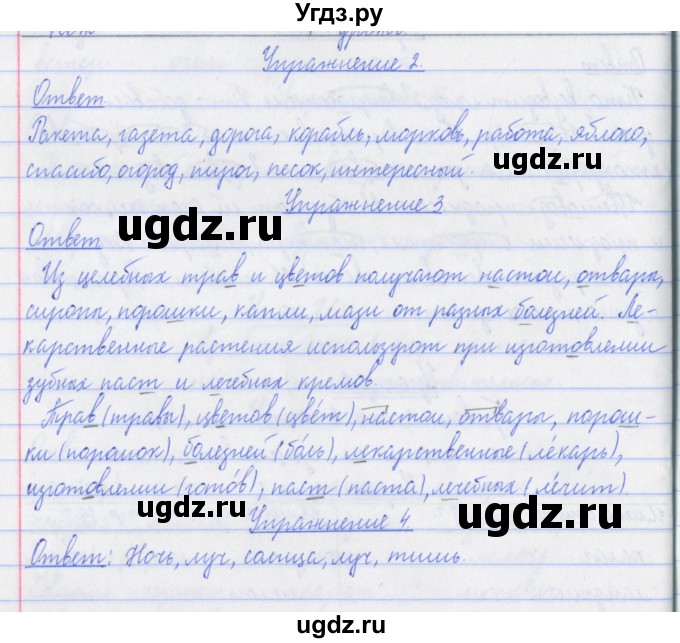 Угдз.ру
Упражнение 2.
Ответ
Ракета, газета, дорога, корабль, морковь, работа, яблоко,
спасибо, огород, пирог, песок, интересный.
ugdz.ru
Упражнение 3.
ugdz.ru
Ответ
Из целебных трав и цветов получают настои, отвары,
сиропы, порошки, капли, мази от разных болезней. Ле-
карственные растения используют при изготовлении
зубных паст и лечебных кремов.
Трав (травы), цветов (цве́т), настои, отвары, порош-
ки (порошок), болезней (бо́ль), лекарственные (ле́карь),
изготовлении (гото́в), паст (паста), лечебных (ле́чит).
ugdz.ru
Упражнение 4.
ugdz.ru
Ответ: Ночь, луч, солнца, луч, тишь.
ugdz.ru